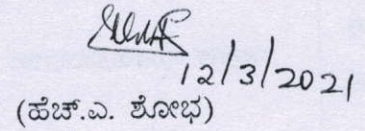 12/3/2021
(ಹೆಚ್.ಎ. ಶೋಭ)